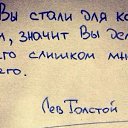 Вы стали для ко
, значит Вы де
его слишком мн
его.
Лев Толстой